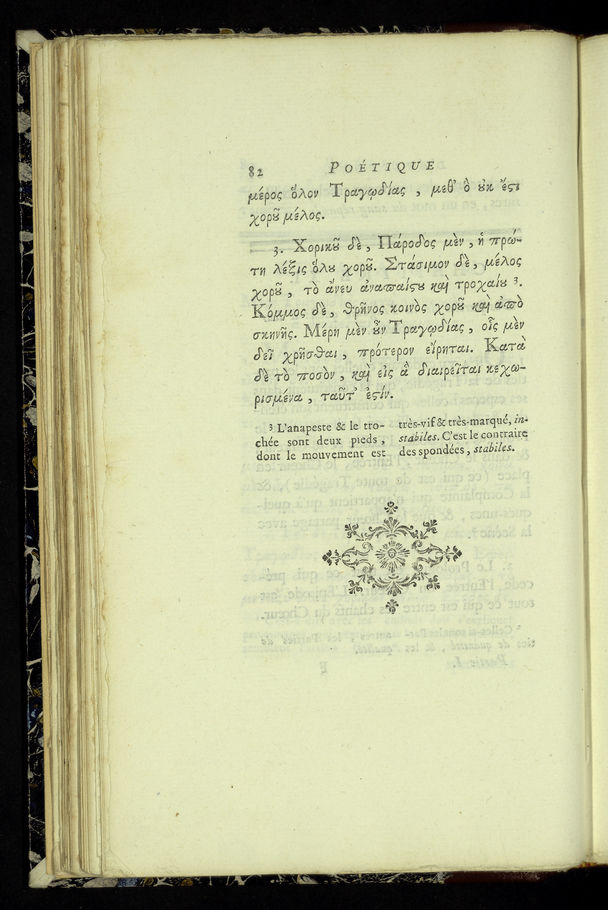 82 POÉTIQUE
μέρος ὅλον Τραγῳδίας, μεθ' ὃ ȣκ ἔϛι
χορȣ͂ μέλος.
3. Χορικȣ͂ δὲ, Πάροδος μὲν, ἡ πρώ-
τη λέξις ὅλȣ χορȣ͂. Στάσιμον δὲ, μέλος
χορȣ͂, τὸ ἄνευ ἀναπαίϛȣ καὶ τροχαίȣ ³.
Κόμμος δὲ, θρῆνος κοινὸς χορȣ͂ καὶ ἀπὸ
σκηνῆς. Μέρη μὲν ȣ͂ν Τραγῳδίας, οἷς μὲν
δεῖ χρῆσθαι, πρότερον εἴρηται. Κατὰ
δὲ τὸ ποσὸν, καὶ εἰς ἃ διαιρεῖται κεχω-
ρισμένα, ταῦτ' ἐϛίν.
³ L'anapeste & le tro-
chée sont deux pieds,
dont le mouvement est
très-vif & très-marqué, in-
stabiles. C'est le contraire
des spondées, stabiles.